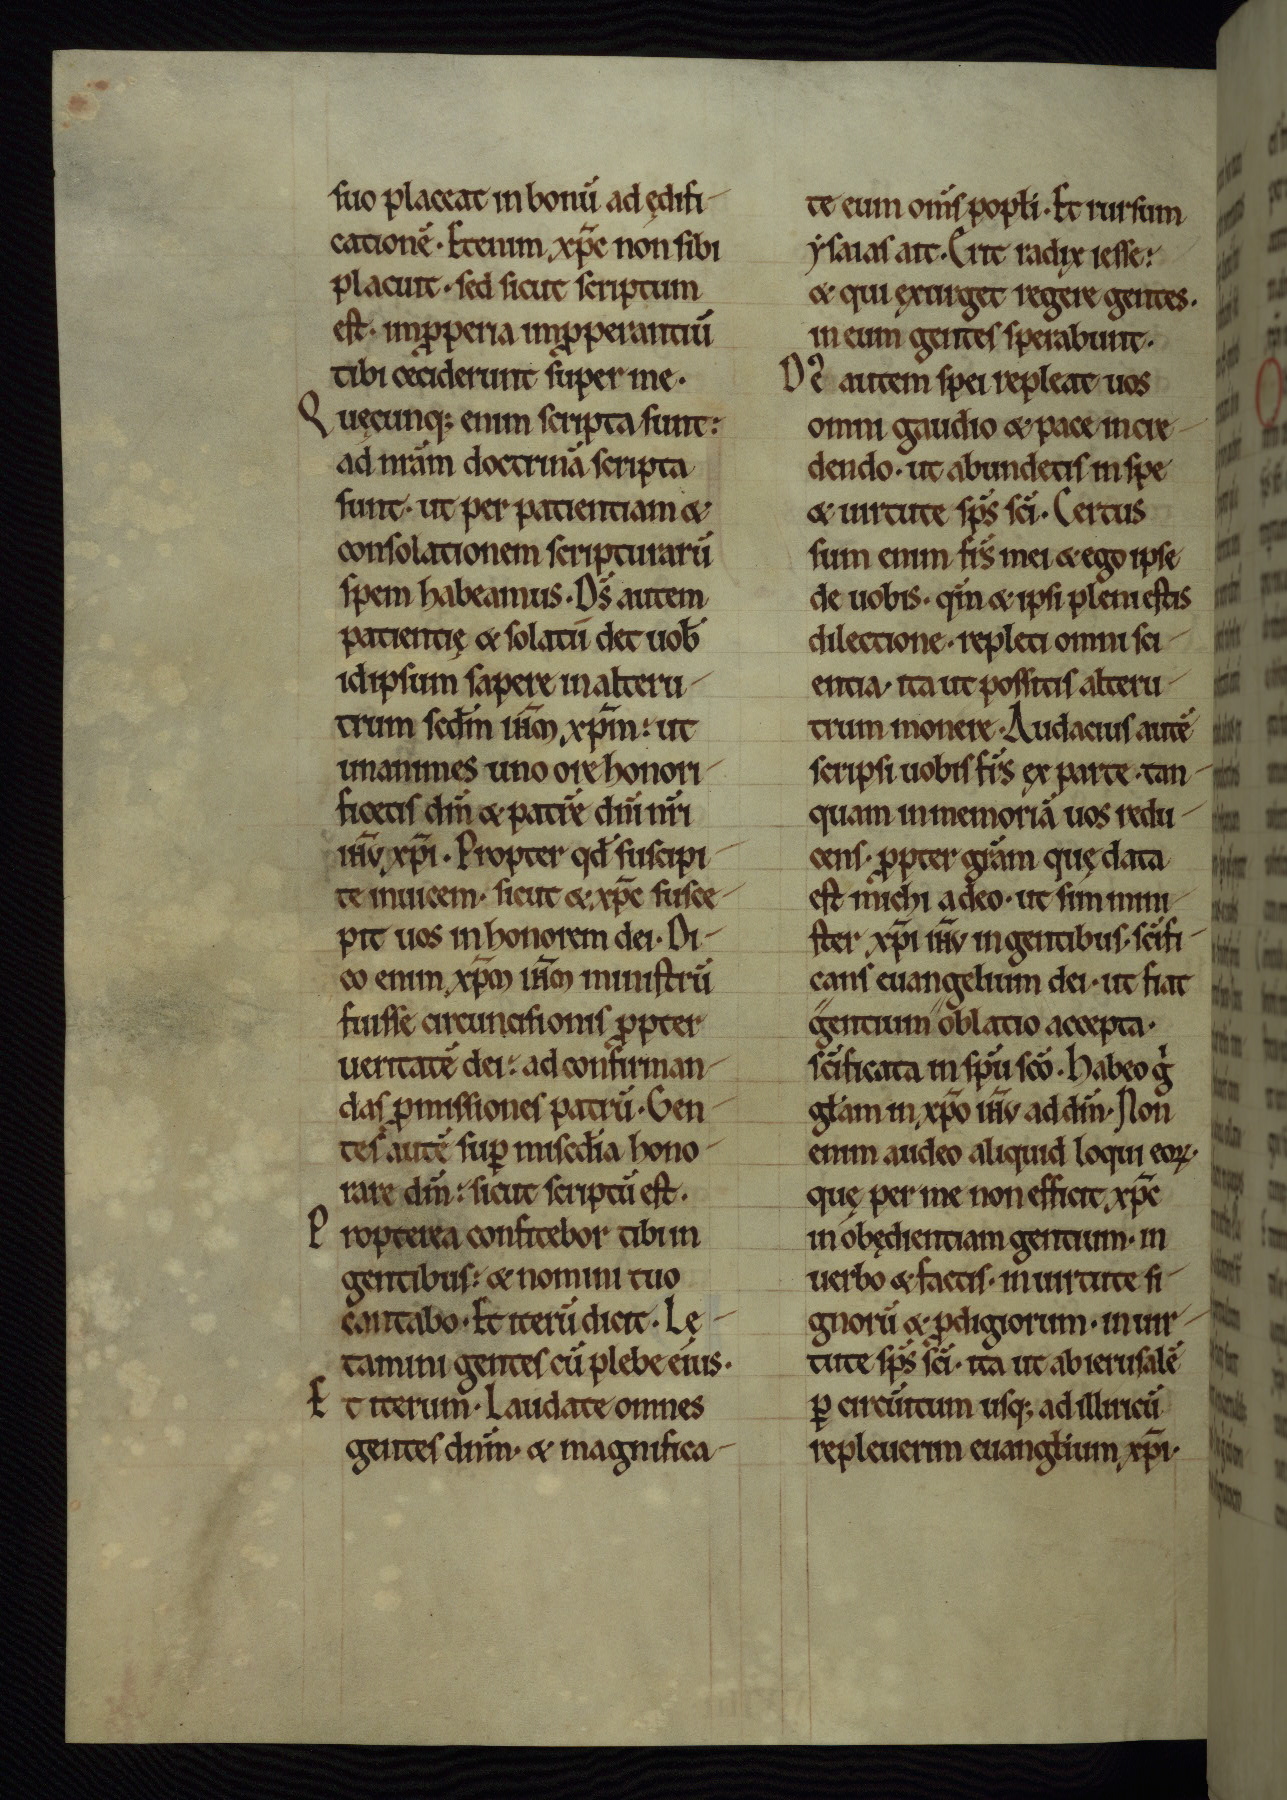 suo placeat in bonū ad ędifi-
cationē. Etenim xp̄c non sibi
placuit. sed sicut scriptum
est. imꝓperia imꝓperantiū
tibi ceciderunt super me.
Quęcunq; enim scripta sunt:
ad nr̄am doctrinā scripta
sunt. ut per patientiam &
consolationem scripturarū
spem habeamus. Ds̄ autem
patientię & solatii det uob̄
idipsum sapere in alteru-
trum sedm̄ ih̄m xp̄m: ut
unanimes uno ore honori-
ficetis dm̄ & patrē dn̄i nr̄i
ih̄u xp̄i. Propter qd̄ suscipi-
te inuicem. sicut & xp̄c susce-
pit uos in honorem dei. Di-
co enim xp̄m ih̄m ministrū
fuisse circuncisionis ꝓpter
ueritatē dei: ad confirman-
das ꝓmissiones patrū. Gen-
tes autē suꝑ misedīa hono-
rare dm̄: sicut scriptū est.
Propterea confitebor tibi in
gentibus: & nomini tuo
cantabo. Et iterū dicit. Lę-
tamini gentes cū plebe eius.
Et iterum. Laudate omnes
gentes dnm̄. & magnifica-
te eum om̄s popłi. Et rursum
ẏsaias ait. Erit radix iesse:
& qui exurget regere gentes.
in eum gentes sperabunt.
Dc̄ autem spei repleat uos
omni gaudio & pace in cre-
dendo. ut abundetis in spe
& uirtute sp̄s sc̄i. Certus
sum enim fr̄s mei & ego ipse
de uobis. qm̄ & ipsi pleni estis
dilectione. repleti omni sci-
entia. ita ut possitis alteru-
trum monere. Audacius autē
scripsi uobis fr̄s ex parte. tan-
quam in memoriā uos redu-
cens. ꝓpter gr̄am quę data
est michi a deo. ut sim mini-
ster xp̄i ih̄u in gentibus. sc̄ifi-
cans euangelium dei. ut fiat
gentium oblatio accepta.
sc̄ificata in sp̄u sc̄o. Habeo gͥ
głam in xp̄o ih̄u ad dm̄. Non
enim audeo aliquid loqui eoꝝ.
quę per me non efficit xp̄c
in obędientiam gentium. in
uerbo & factis. in uirtute si-
gnorū & ꝓdigiorum. in uir-
tute sp̄s sc̄i. ita ut ab ierusalē
ꝑ circuitum usq; ad illiricū
repleuerim euangłium xp̄i.